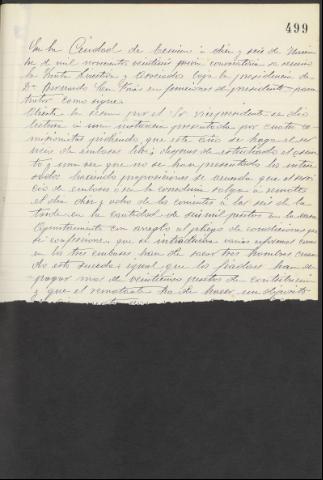 499
En la Ciudad de Tecivin á diez y seis de Novim
bre de mil novecientos veintiseis previa convocatoria se reunio
la Junta Directiva y Asociados bajo la presidencia de
Dn Bernardo en funciones de presidente para
tratar como sigue.
Abierta la sesion por el Sr vicepresidente se dio
lectura á una instancia presentada por cuatro co
misionistas pidiendo que este año se haga el ser
vicio de embase libre, despues de estudiado el asun
to y una vez que no se han presentado los intere
sados haciendo proposiciones se acuerda que el servi
cio de embase y de la salga á remate
el dia diez y ocho de los corrientes á las seis de la
tarde en la cantidad de seis mil pesetas en la casa
Ayuntamiento con arreglo al pliego de condiciones que
se confeccione que se introduciran varias reformas como
en los tres embases han de sacar tres hombres cuan
do esto suceda, igual que los fiadores han de
pagar mas de veinticinco pesetas de contribucion
y que el rematante ha de hacer un deposito